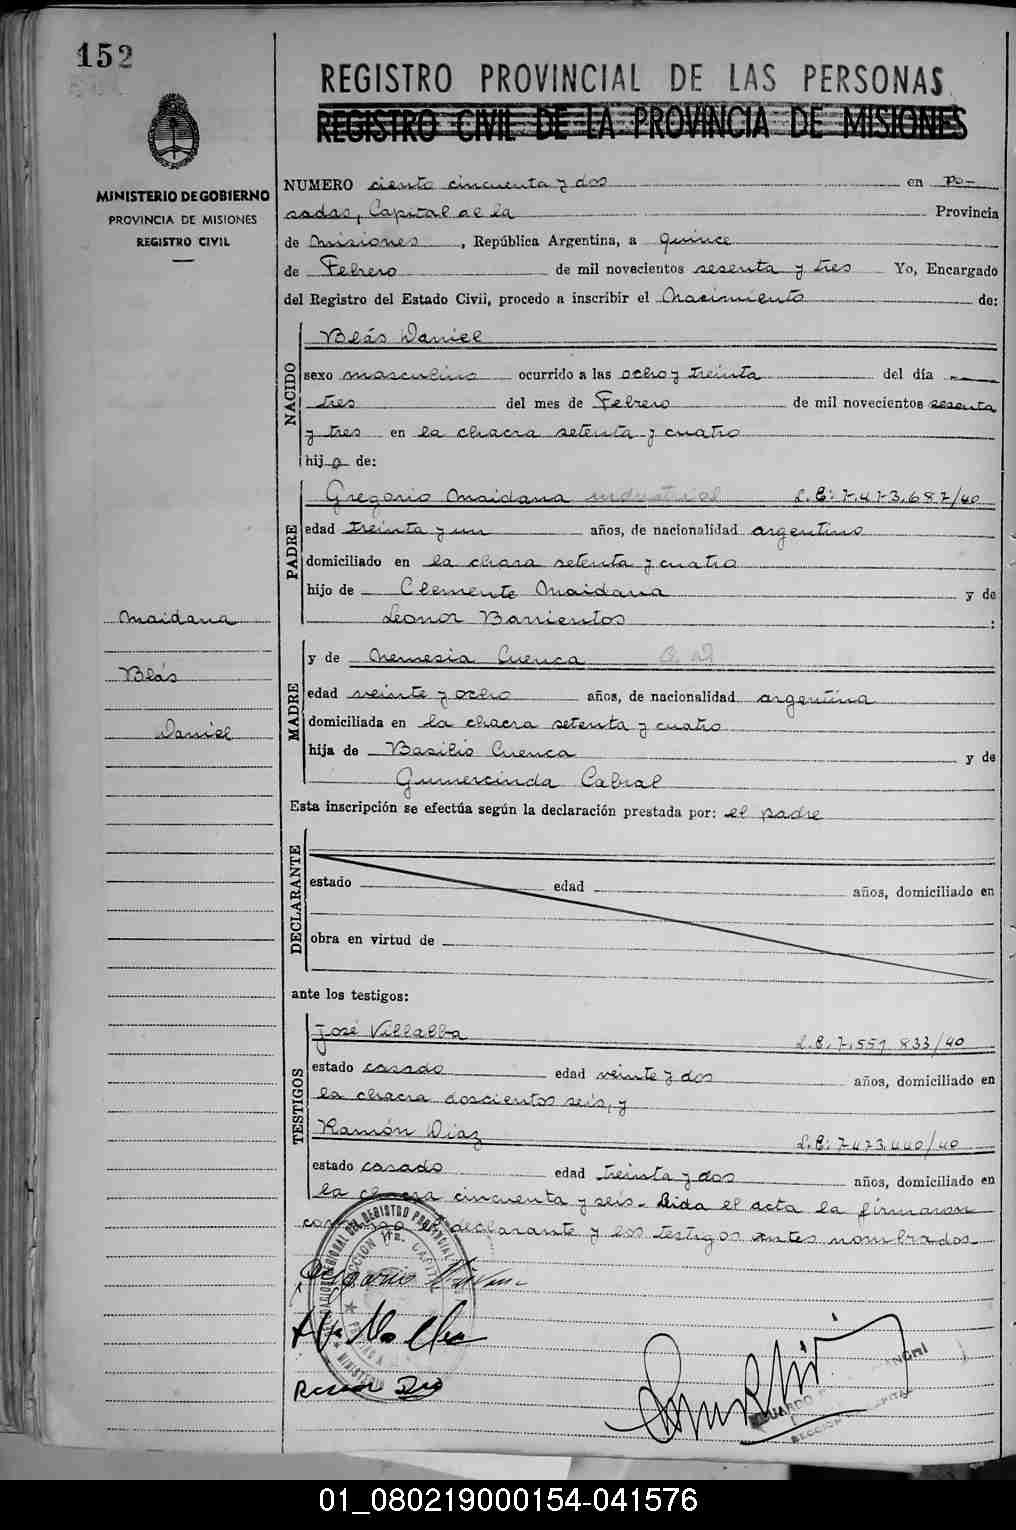 152
REGISTRO PROVINCIAL DE LAS PERSONAS
REGISTRO CIVIL DE LA PROVINCIA DE MISIONES
MINISTERIO DE GOBIERNO
PROVINCIA DE MISIONES
REGISTRO CIVIL
NUMERO ciento cincuenta y dos en Po-
sadas, Capital de la Provincia
de Misiones, República Argentina, a quince
de Febrero de mil novecientos sesenta y tres Yo, Encargado
del Registro del Estado Civil, procedo a inscribir el Nacimiento de:
NACIDO
Blás Daniel
sexo masculino ocurrido a las ocho y treinta del día
tres del mes de Febrero de mil novecientos sesenta
y tres en la chacra setenta y cuatro
hijo de:
PADRE
Gregorio Maidana industrial L.E: 7.473.687/40
edad treinta y un años, de nacionalidad argentino
domiciliado en la chara setenta y cuatro
hijo de Clemente Maidana y de
Leonor Barrientos :
Maidana
Blás
Daniel
MADRE
y de Nemesia Cuenca
edad veinte y ocho años, de nacionalidad argentina
domiciliada en la chacra setenta y cuatro
hija de Basilio Cuenca y de
Gumercinda Cabral
Esta inscripción se efectúa según la declaración prestada por: el padre
DECLARANTE
estado edad años, domiciliado en
obra en virtud de
ante los testigos:
TESTIGOS
José Villalba L.E. 7.551.833/40
estado casado edad veinte y dos años, domiciliado en
la chacra doscientos seis, y
Ramón Diaz L.E: 7473.440/40
estado casado edad treinta y dos años, domiciliado en
la chacra cincuenta y seis. Leida el acta la firmaron
declarante y los testigos antes nombrados
01_080219000154-041576